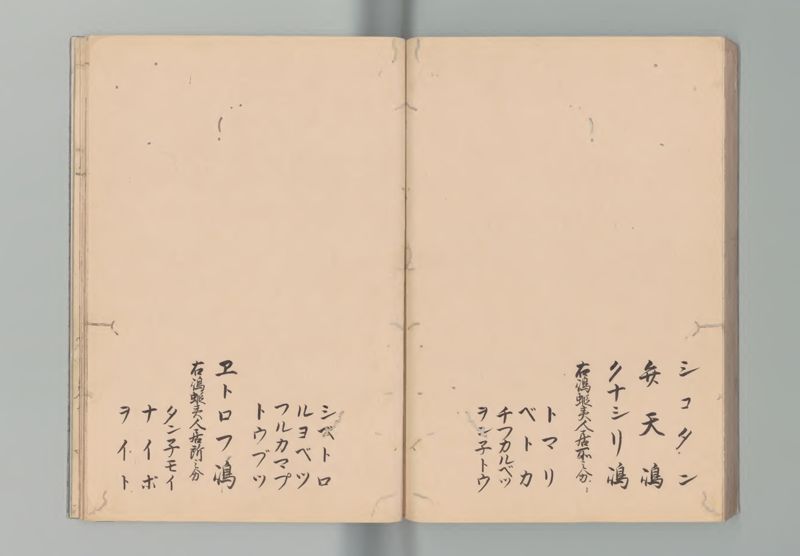 シコタン
弁天嶋
クナシリ嶋
右嶋蝦夷人居所之分
トマリ
ベトカ
チフカルベツ
ヲン子トウ
シベトロ
ルヨベツ
フルカマプ
トウブツ
ヱトロフ嶋
右嶋蝦夷人居所之分
タン子モイ
ナイボ
ヲイト